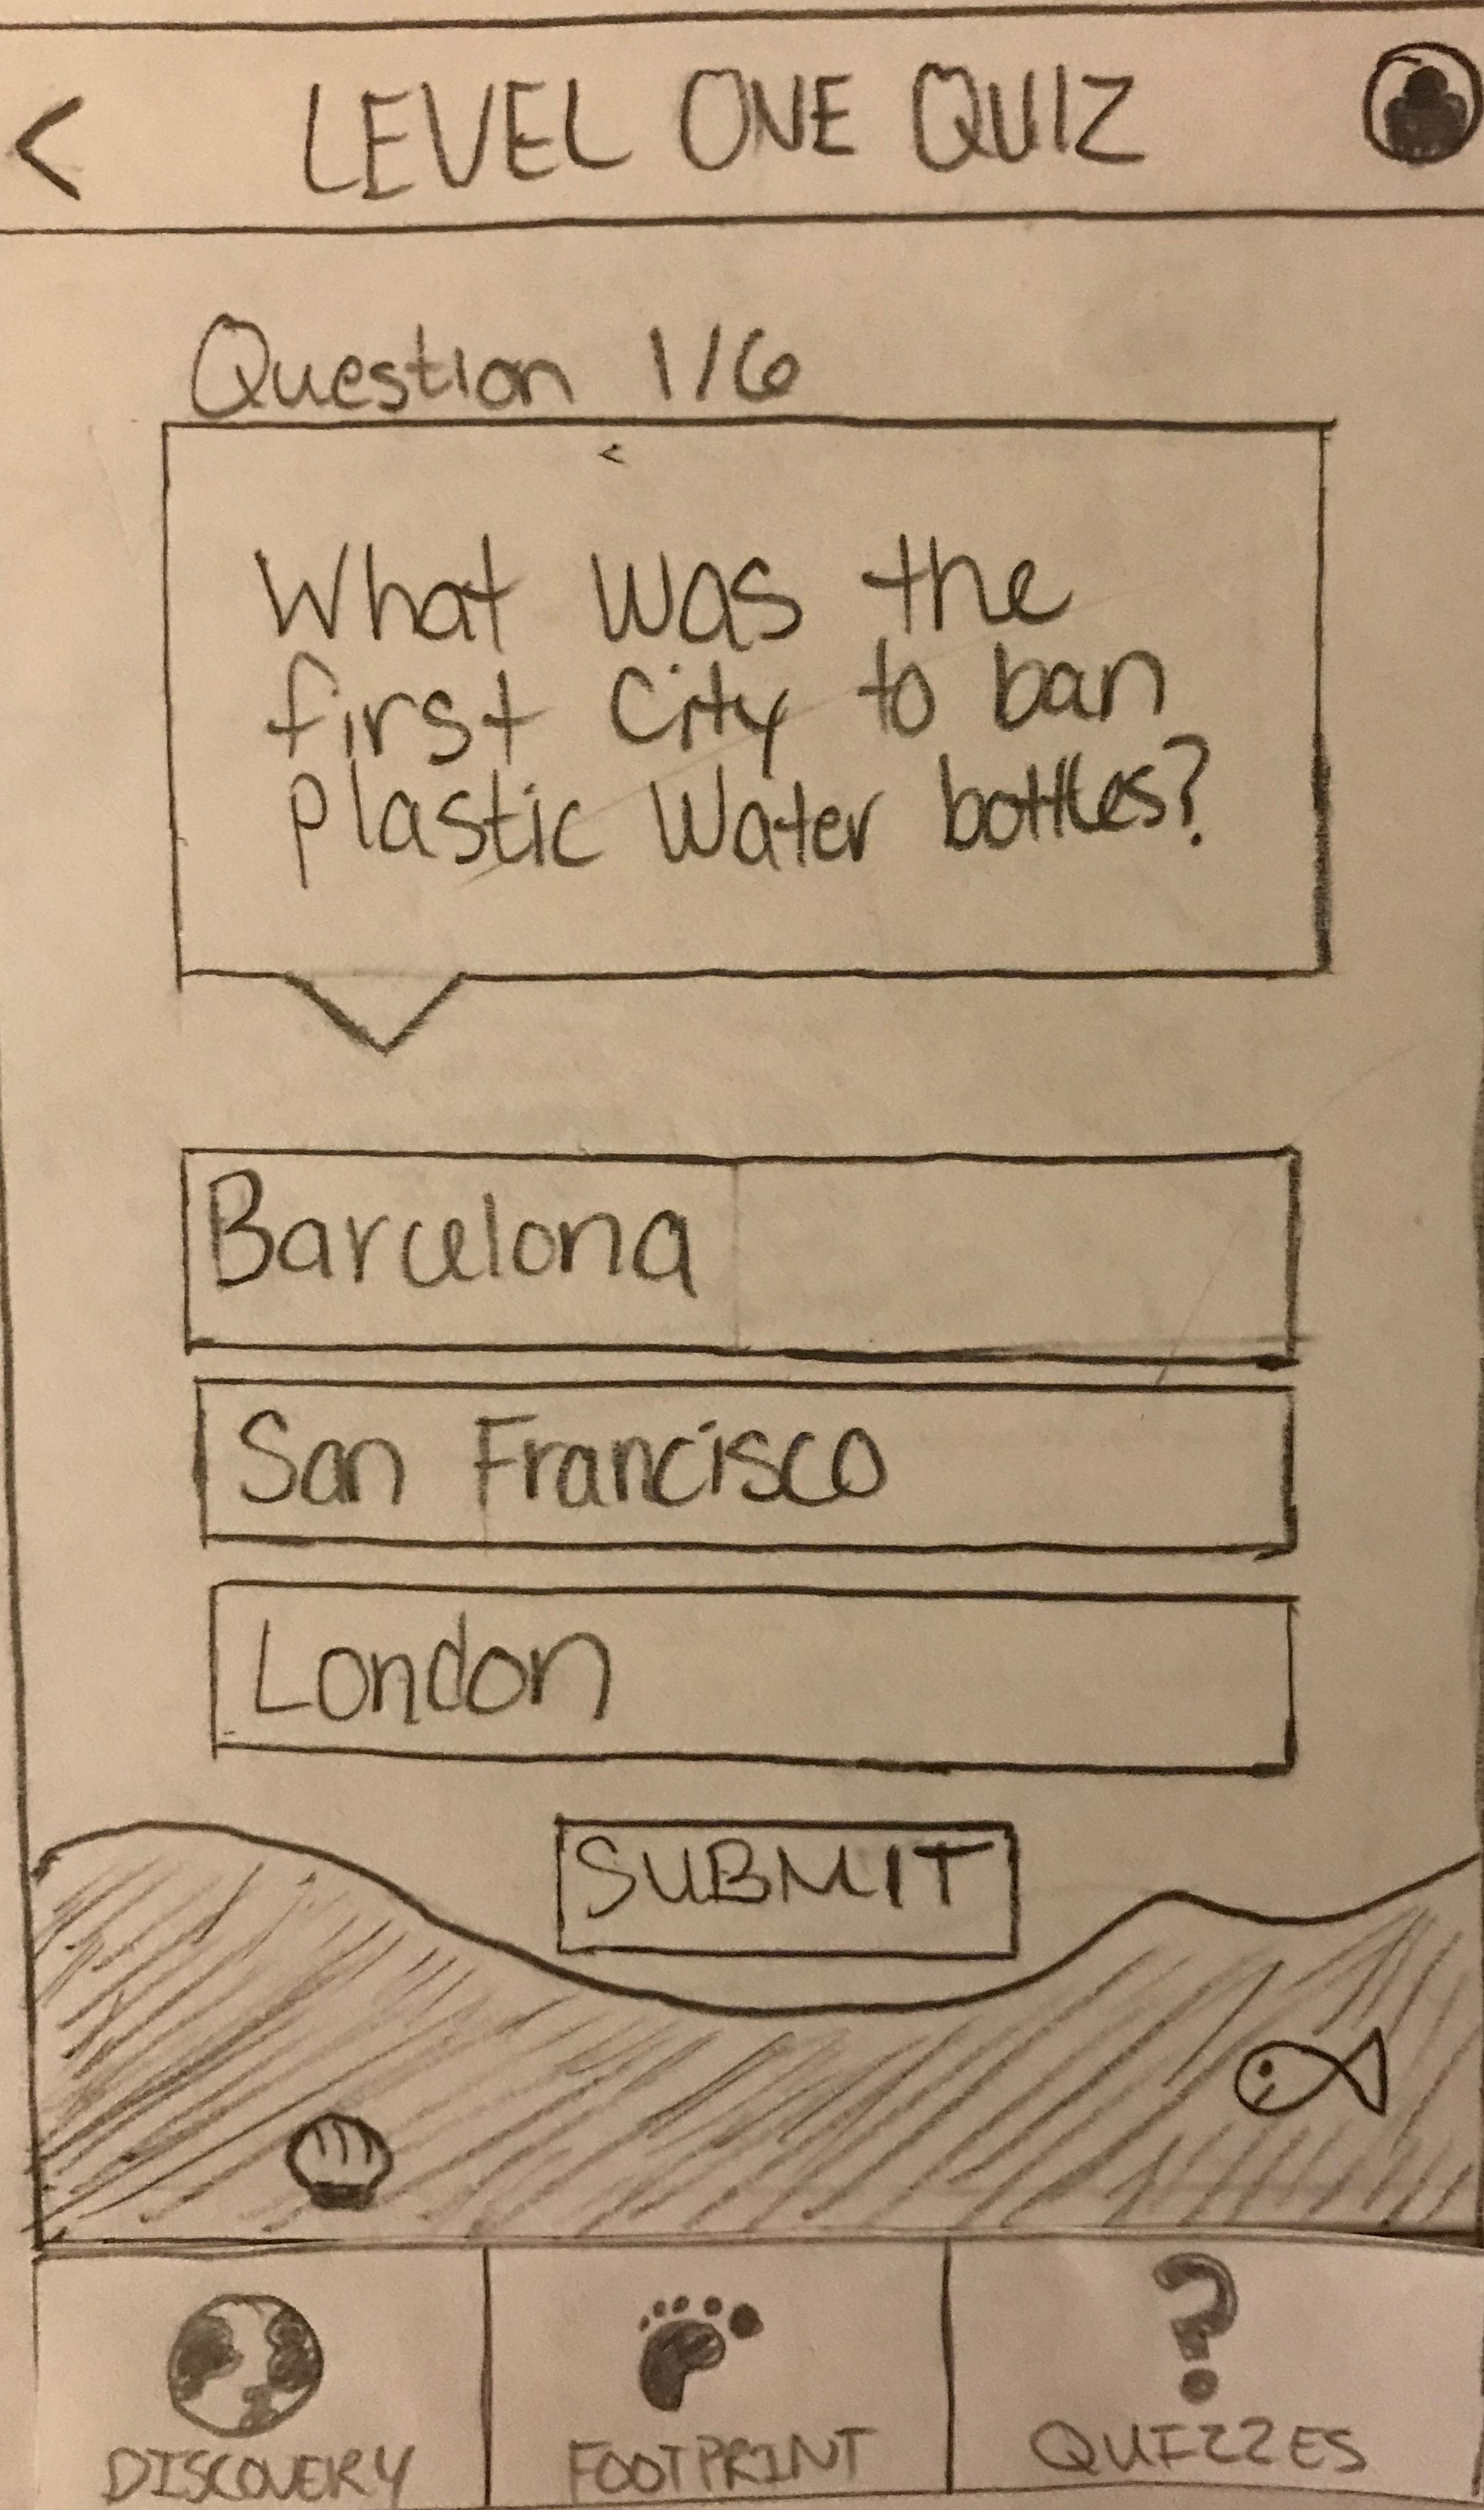 < LEVEL ONE QUIZ
Question 1/6
<
What was the
first City to ban
plastic Water bottles?
Barcelona
San Francisco
London
SUBMIT
?
DISCOVERY FOOTPRINT QUIZZES